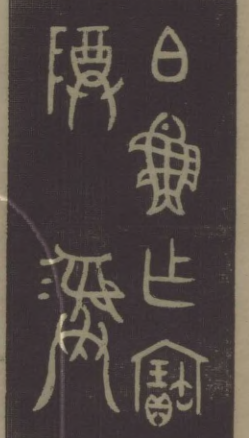 白魚乍寶
尊彝